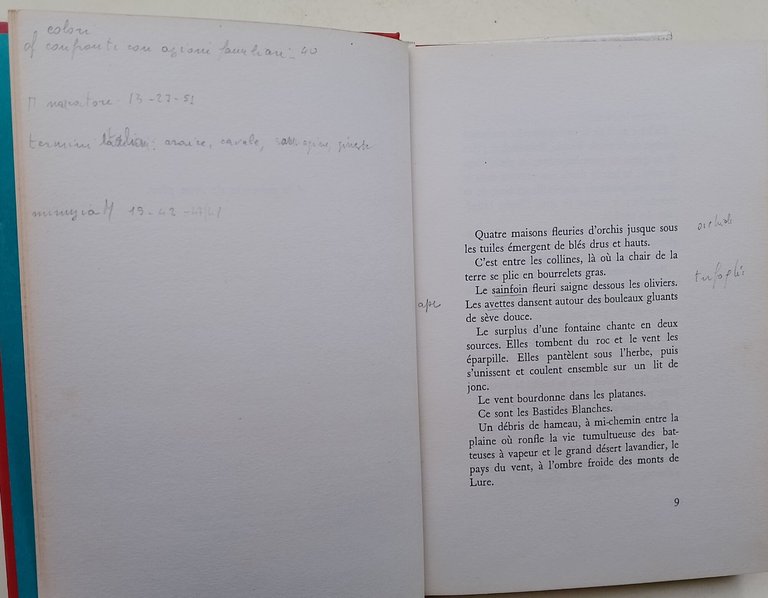 colori
confronti con azioni familiari: 40
narratore: 13-27-51
termini : araire, cavale,
19-42
Quatre maisons fleuries d'orchis jusque sous
les tuiles émergent de blés drus et hauts.
C'est entre les collines, là où la chair de la
terre se plie en bourrelets gras.
Le sainfoin fleuri saigne dessous les oliviers.
Les avettes dansent autour des bouleaux gluants
de sève douce.
Le surplus d'une fontaine chante en deux
sources. Elles tombent du roc et le vent les
éparpille. Elles pantèlent sous l'herbe, puis
s'unissent et coulent ensemble sur un lit de
jonc.
Le vent bourdonne dans les platanes.
Ce sont les Bastides Blanches.
Un débris de hameau, à mi-chemin entre la
plaine où ronfle la vie tumultueuse des bat-
teuses à vapeur et le grand désert lavandier, le
pays du vent, à l'ombre froide des monts de
Lure.
9
orchidee
ape